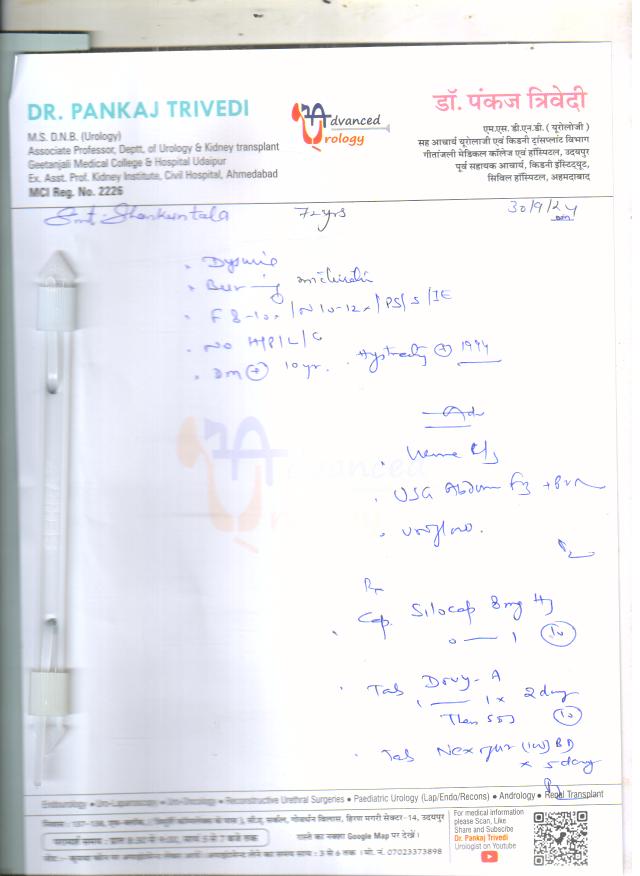 DR. PANKAJ TRIVEDI
M.S. D.N.B. (Urology)
Associate Professor, Deptt. of Urology & Kidney transplant
Geetanjali Medical College & Hospital Udaipur
Ex. Asst. Prof. Kidney Institute, Civil Hospital, Ahmedabad
MCI Reg. No. 2226
Advanced
Urology
डॉ. पंकज त्रिवेदी
एम.एस. डी.एन.डी. ( यूरोलोजी )
सह आचार्य यूरोलाजी एवं किडनी ट्रांसप्लांट विभाग
गीतांजली मेडिकल कॉलेज एवं हॉस्पिटल, उदयपुर
पूर्व सहायक आचार्य, किडनी इंस्टिट्यूट,
सिविल हॉस्पिटल, अहमदाबाद
Smt. Shankuntala 72yrs 30/9/24
Dysuria
F 8-10x / N 10-12x / PS/S/IE
NO H/P/L/C
DM + 10yr. 1994
Adv
Urine C/S
USG Abdomen
Uroflow.
Advanced
Urology
Rx
Cap. Silocap 8mg HS
0 — 1 10
Tab A
1 — 1 x 2day
Then 10
Tab BD
x 5day
Endourology • Uro-Laparoscopy • Uro-Oncology • Reconstructive Urethral Surgeries • Paediatric Urology (Lap/Endo/Recons) • Andrology • Renal Transplant
गोवर्धन विलास, हिरण मगरी सेक्टर-14, उदयपुर
परामर्श समय : प्रातः 8:30 से 9:00, सायं 5 से 7 बजे तक रास्ते का नक्शा Google Map पर देखें।
समय : 3 से 6 तक । मो. नं. 07023373898
For medical information
please Scan, Like
Share and Subscibe
Dr. Pankaj Trivedi
Urologist on Youtube